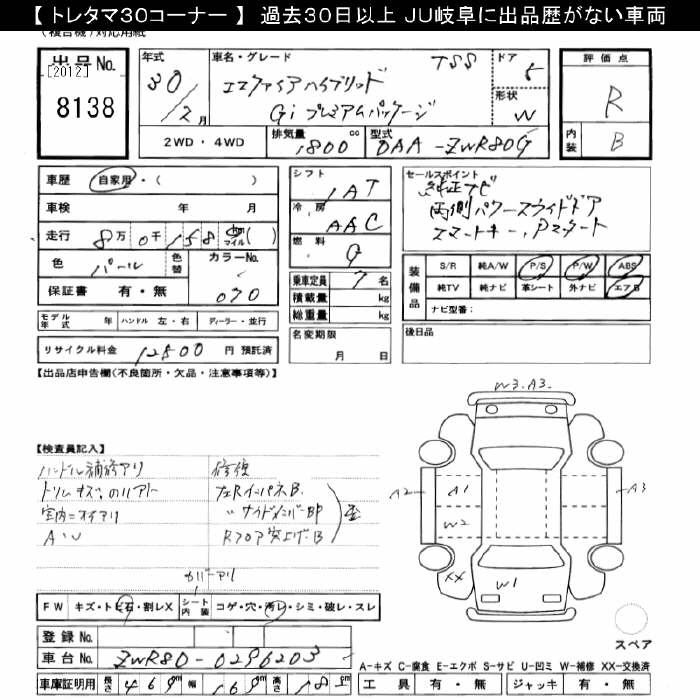 【 トレタマ30コーナー 】 過去30日以上 JU岐阜に出品歴がない車両
(複合機)対応用紙
出品No.
[2012]
8138
年式
30
/2月
車名・グレード
エスクァイアハイブリッド TSS
Gi プレミアムパッケージ
ドア
5
形状
W
評価点
R
内装
B
2WD ・ 4WD
排気量
1800 cc
型式
DAA-ZWR80G
車歴 自家用・( )
車検 年 月
走行 8万 0千 158 km マイル ( )
色 パール 色替 カラーNo.
070
保証書 有・無
シフト
IAT
冷房
AAC
燃料
G
乗車定員 7 名
積載量 kg
総重量 kg
セールスポイント
純正ナビ
両側パワースライドドア
スマートキー、Pスタート
装備品
S/R 純A/W P/S P/W ABS
純TV 純ナビ 革シート 外ナビ エアB
ナビ型番:
モデル年式 年 ハンドル 左・右 ディーラー・並行
名変期限
月 日
後日品
リサイクル料金 12800 円 預託済
【出品店申告欄(不良箇所・欠品・注意事項等)】
W3.A3.
【検査員記入】
ハンドル補修アリ
トリムキズ、のリアト
室内ニオイアリ
A、U
修復
左RインパネB.
〃サイドメンバーBP
Rフロア突上げB
歪
カバーアリ
A2
A1
A3
W2
XX
W1
FW キズ・トビ石・割レX シート内装 コゲ・穴・汚レ・シミ・破レ・スレ
登録No.
車台No. ZWR80-0296203
車庫証明用 長さ 469 幅 169 高さ 18 cm
スペア
A-キズ C-腐食 E-エクボ S-サビ U-凹ミ W-補修 XX-交換済
工具 有・無 ジャッキ 有・無